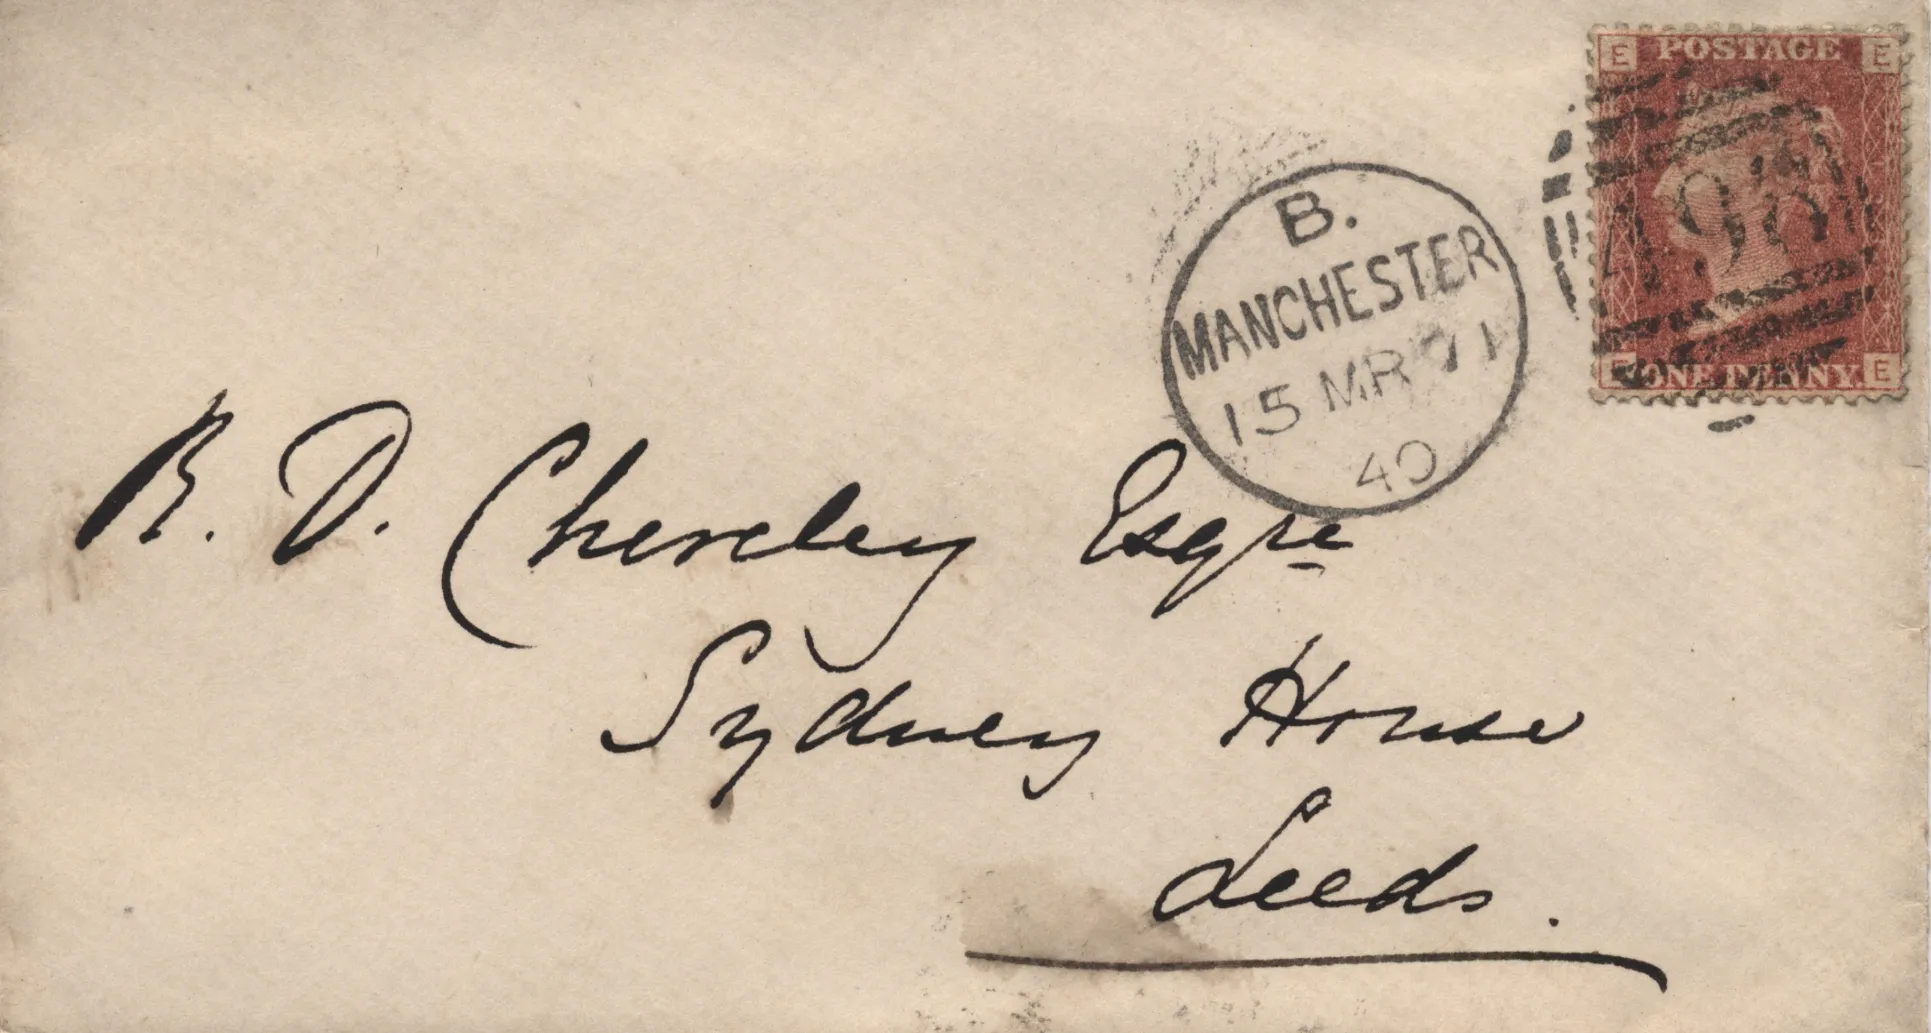 E POSTAGE E
498
E ONE PENNY E
B.
MANCHESTER
15 MR 71
40
R. D. Chereley Esqre
Sydney House
Leeds.